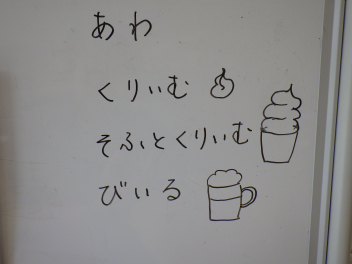 あわ
くりいむ
そふとくりいむ
びいる